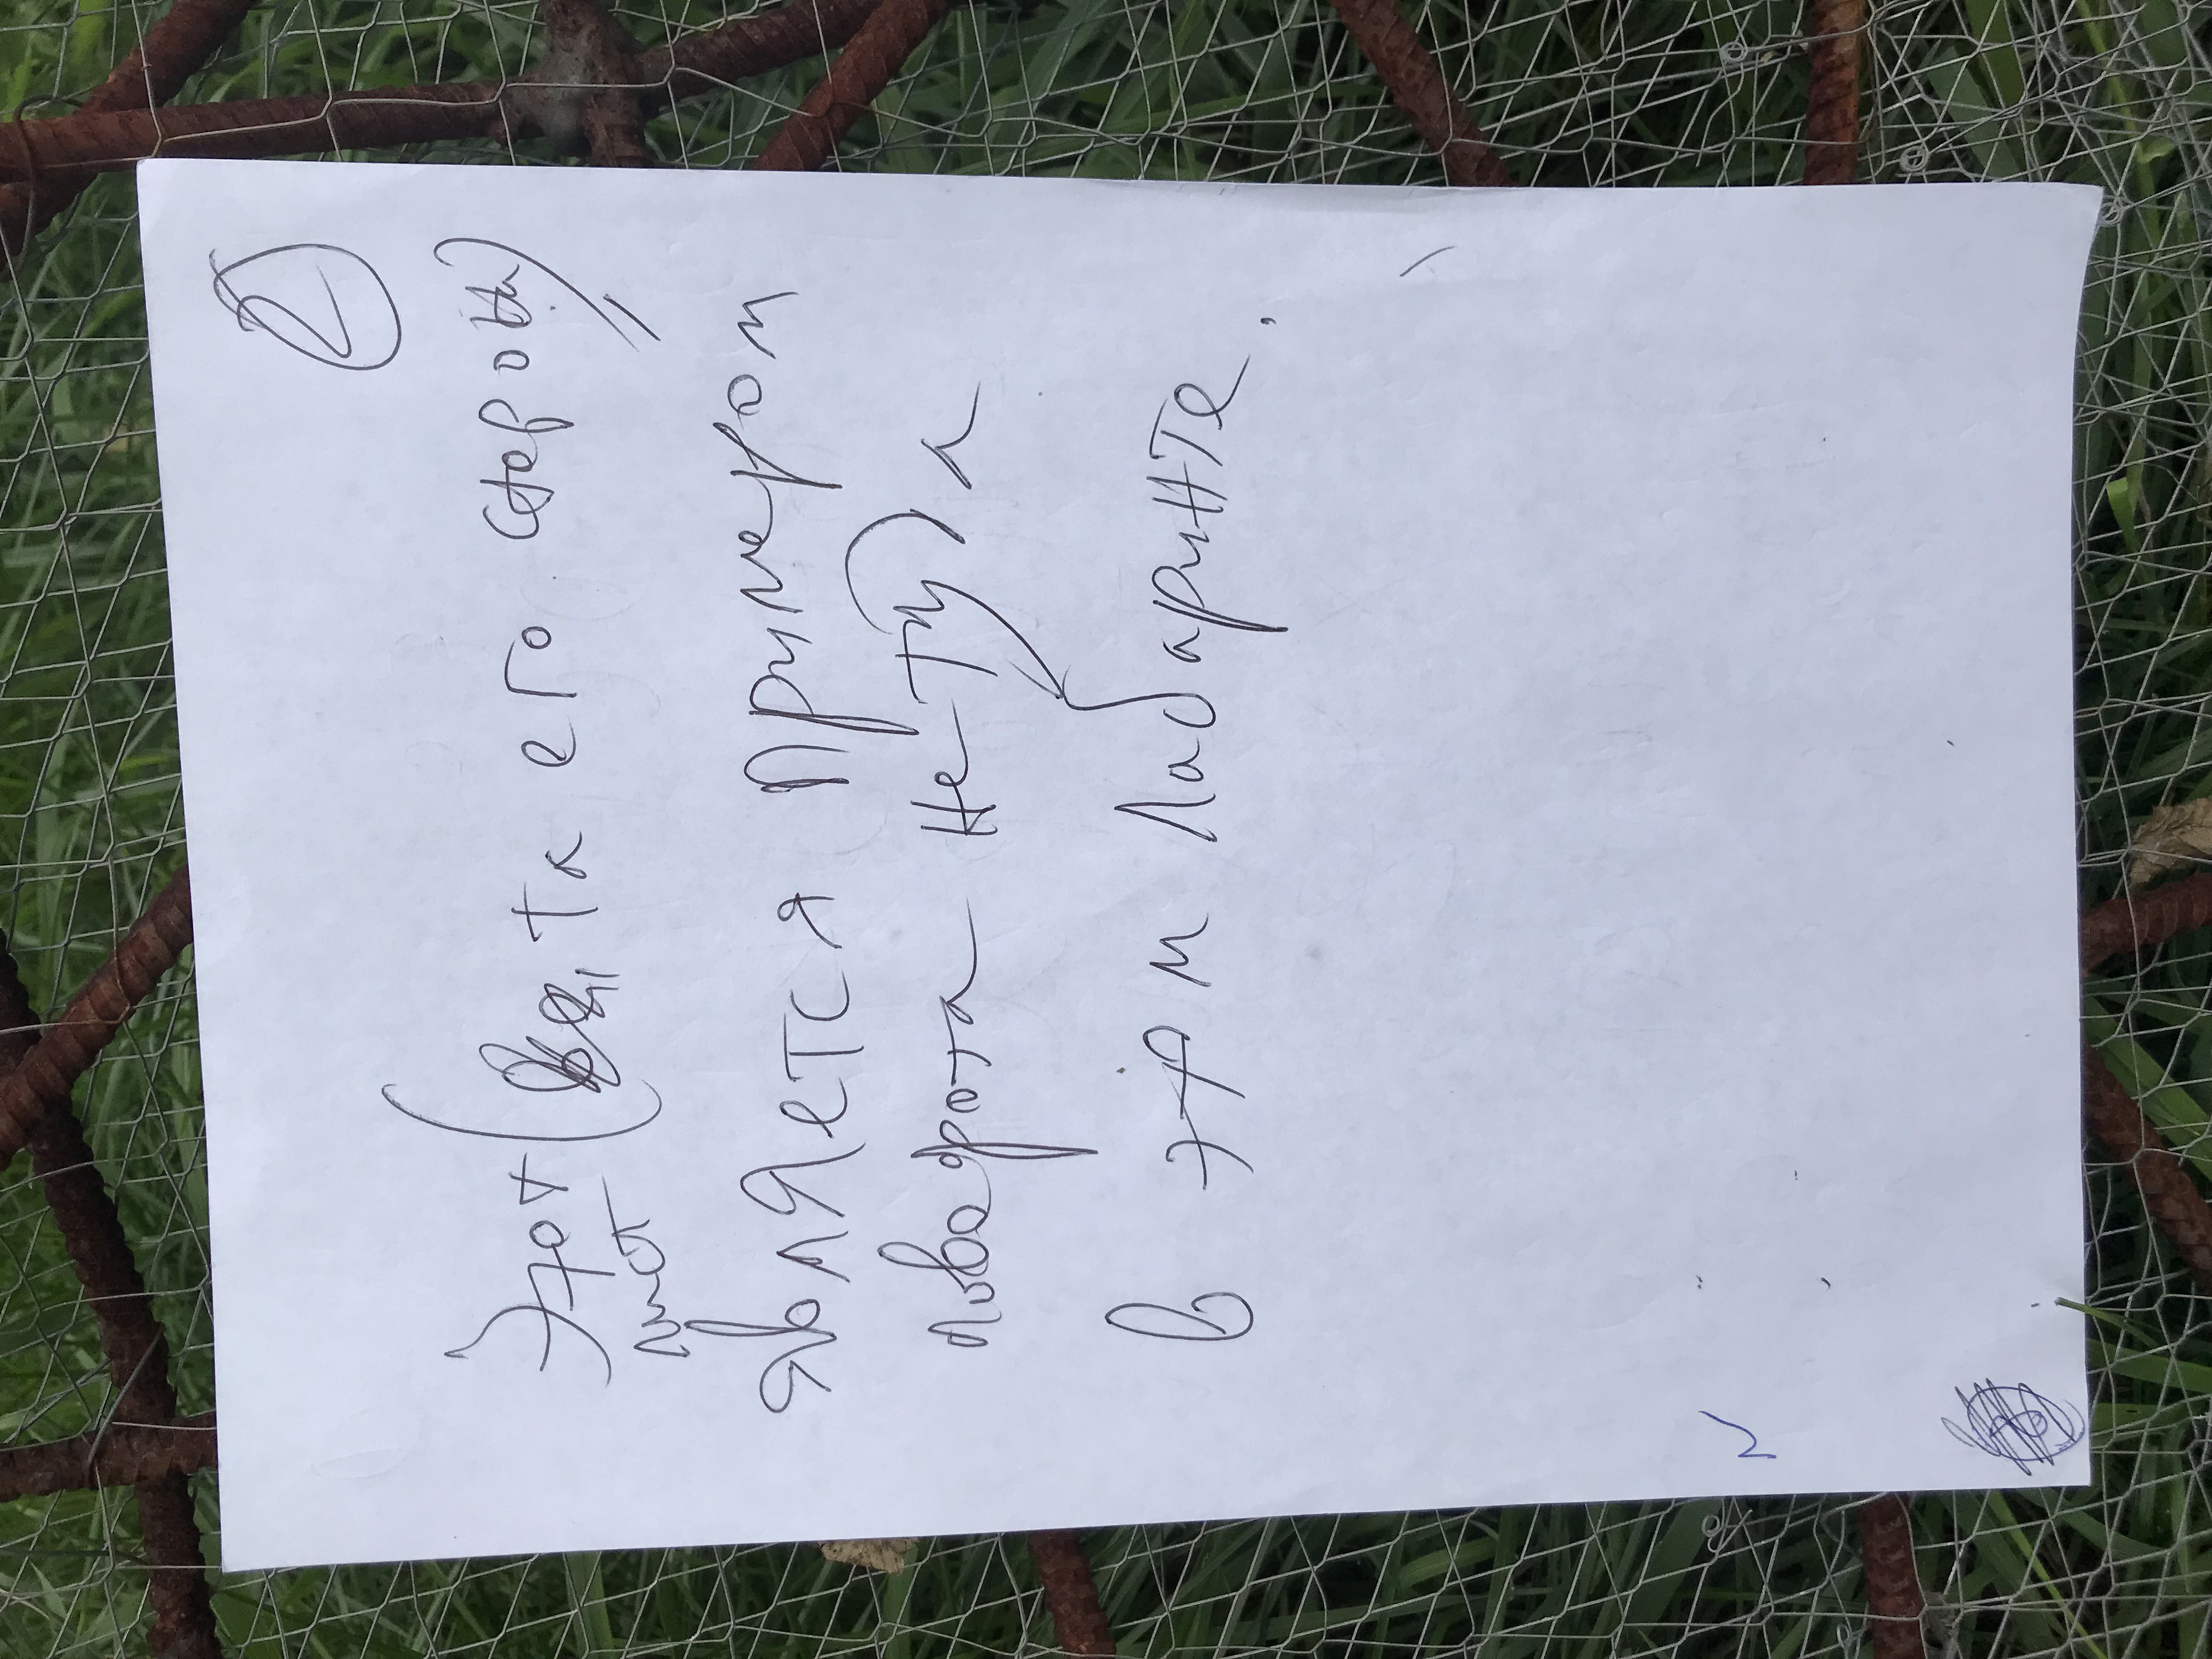 2
Этот (эта его сторона)
лист
является примером
поворота не туда
в этом лабаринте.